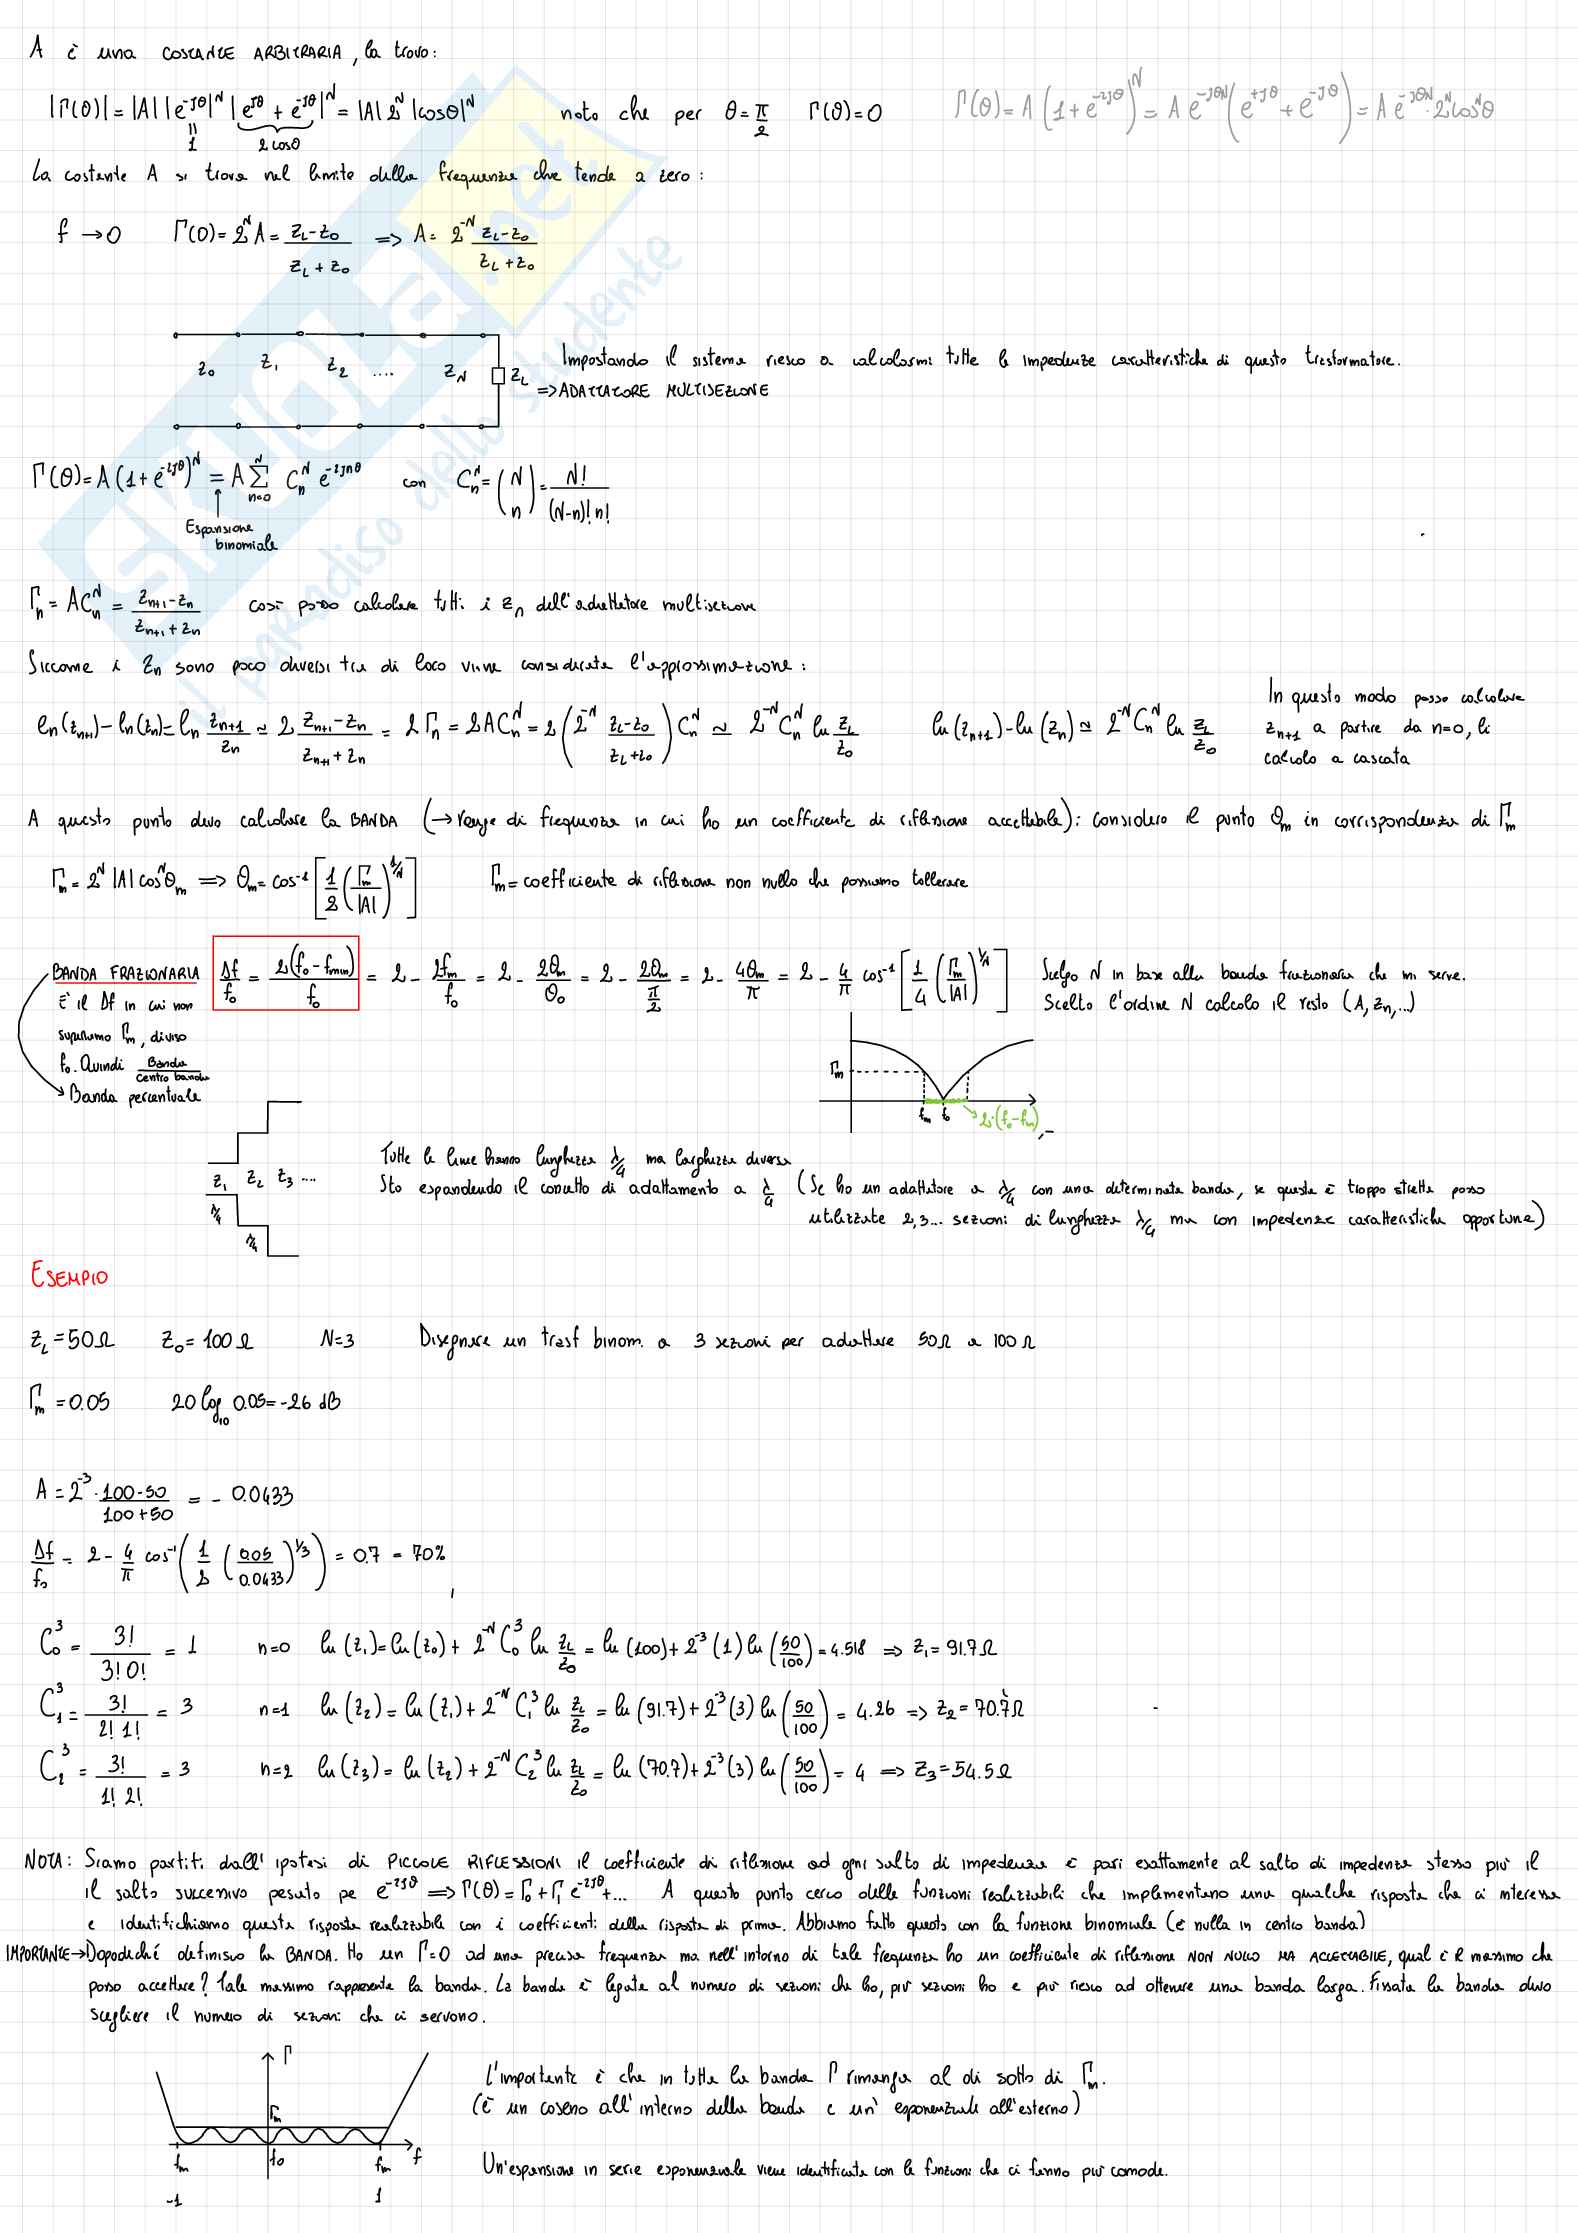 A è una COSTANTE ARBITRARIA, la trovo:
|Γ(θ)| = |A| |e^{-jθ}|^N |e^{jθ} + e^{-jθ}|^N = |A| 2^N |cosθ|^N noto che per θ = π/2 Γ(θ) = 0 Γ(θ) = A (1 + e^{-2jθ})^N = A e^{-jθN} (e^{+jθ} + e^{-jθ}) = A e^{-jθN} · 2^N cos^N θ
1 2 cosθ
La costante A si trova nel limite della frequenza che tende a zero:
f → 0 Γ(0) = 2^N A = (Z_L - Z_0)/(Z_L + Z_0) => A = 2^{-N} (Z_L - Z_0)/(Z_L + Z_0)
Z_0 Z_1 Z_2 .... Z_N Z_L
Impostando il sistema riesco a calcolarmi tutte le impedenze caratteristiche di questo trasformatore.
=> ADATTATORE MULTISEZIONE
Γ(θ) = A (1 + e^{-2jθ})^N = A Σ_{n=0}^{N} C_n^N e^{-2jnθ} con C_n^N = (N n) = N!/((N-n)! n!)
Espansione
binomiale
Γ_n = A C_n^N = (Z_{n+1} - Z_n)/(Z_{n+1} + Z_n) così posso calcolare tutti i Z_n dell'adattatore multisezione
Siccome i Z_n sono poco diversi tra di loro viene considerata l'approssimazione:
ln(Z_{n+1}) - ln(Z_n) = ln Z_{n+1}/Z_n ≃ 2 (Z_{n+1} - Z_n)/(Z_{n+1} + Z_n) = 2 Γ_n = 2 A C_n^N = 2 (2^{-N} (Z_L - Z_0)/(Z_L + Z_0)) C_n^N ≃ 2^{-N} C_n^N ln Z_L/Z_0 ln(Z_{n+1}) - ln(Z_n) ≃ 2^{-N} C_n^N ln Z_L/Z_0
In questo modo posso calcolare
Z_{n+1} a partire da n=0, li
calcolo a cascata
A questo punto devo calcolare la BANDA (→ range di frequenze in cui ho un coefficiente di riflessione accettabile): considero il punto θ_m in corrispondenza di Γ_m
Γ_m = 2^N |A| cos^N θ_m => θ_m = cos^{-1} [1/2 (Γ_m/|A|)^{1/N}] Γ_m = coefficiente di riflessione non nullo che possiamo tollerare
BANDA FRAZIONARIA Δf/f_0 = 2(f_0 - f_min)/f_0 = 2 - 2f_m/f_0 = 2 - 2θ_m/θ_0 = 2 - 2θ_m/(π/2) = 2 - 4θ_m/π = 2 - 4/π cos^{-1} [1/4 (Γ_m/|A|)^{1/N}]
Scelgo N in base alla banda frazionaria che mi serve.
Scelto l'ordine N calcolo il resto (A, Z_n, ...)
È il Δf in cui non
superiamo Γ_m, diviso
f_0. Quindi Banda/Centro banda
→ Banda percentuale
Γ_m f_m f_0 2·(f_0 - f_m)
Z_1 Z_2 Z_3 ...
λ/4
λ/4
Tutte le linee hanno lunghezza λ/4 ma larghezza diversa
Sto espandendo il concetto di adattamento a λ/4 (Se ho un adattatore a λ/4 con una determinata banda, se questa è troppo stretta posso
utilizzate 2,3... sezioni di lunghezza λ/4 ma con impedenze caratteristiche opportune)
ESEMPIO
Z_L = 50Ω Z_0 = 100Ω N=3 Disegnare un trasf binom. a 3 sezioni per adattare 50Ω a 100Ω
Γ_m = 0.05 20 log_10 0.05 = -26 dB
A = 2^{-3} · (100-50)/(100+50) = - 0.0433
Δf/f_0 = 2 - 4/π cos^{-1} (1/2 (0.05/0.0433)^{1/3}) = 0.7 = 70%
C_0^3 = 3!/(3! 0!) = 1 n=0 ln(Z_1) = ln(Z_0) + 2^{-N} C_0^3 ln Z_L/Z_0 = ln(100) + 2^{-3} (1) ln(50/100) = 4.518 => Z_1 = 91.7Ω
C_1^3 = 3!/(2! 1!) = 3 n=1 ln(Z_2) = ln(Z_1) + 2^{-N} C_1^3 ln Z_L/Z_0 = ln(91.7) + 2^{-3} (3) ln(50/100) = 4.26 => Z_2 = 70.7Ω
C_2^3 = 3!/(1! 2!) = 3 n=2 ln(Z_3) = ln(Z_2) + 2^{-N} C_2^3 ln Z_L/Z_0 = ln(70.7) + 2^{-3} (3) ln(50/100) = 4 => Z_3 = 54.5Ω
NOTA: Siamo partiti dall'ipotesi di PICCOLE RIFLESSIONI il coefficiente di riflessione ad ogni salto di impedenza è pari esattamente al salto di impedenza stesso più il
il salto successivo pesato pe e^{-2jθ} => Γ(θ) = Γ_0 + Γ_1 e^{-2jθ} + ... A questo punto cerco delle funzioni realizzabili che implementano una qualche risposta che ci interessa
e identifichiamo questa risposta realizzabile con i coefficienti della risposta di prima. Abbiamo fatto questo con la funzione binomiale (è nulla in centro banda)
IMPORTANTE → Dopodiché definisco la BANDA. Ho un Γ=0 ad una precisa frequenza ma nell'intorno di tale frequenza ho un coefficiente di riflessione NON NULLO MA ACCETTABILE, qual è il massimo che
posso accettare? Tale massimo rappresenta la banda. La banda è legata al numero di sezioni che ho, più sezioni ho e più riesco ad ottenere una banda larga. Fissata la banda devo
scegliere il numero di sezioni che ci servono.
Γ Γ_m f_m f_0 f_m f
-1 1
L'importante è che in tutta la banda Γ rimanga al di sotto di Γ_m.
(È un coseno all'interno della banda e un' esponenziale all'esterno)
Un'espansione in serie esponenziale viene identificata con le funzioni che ci fanno più comode.
SKUOLA.net
il paradiso dello studente